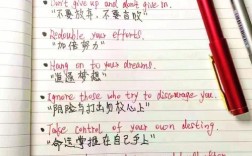 Don't give up and don't give in.
"不要放弃,不要言败"
Redouble your efforts.
"加倍努力"
Hang on to your dreams.
"追逐梦想"
Ignore those who try to discourage you.
"阴险与打击勿放心上"
Take control of your own destiny.
"命运掌握在自己手上"